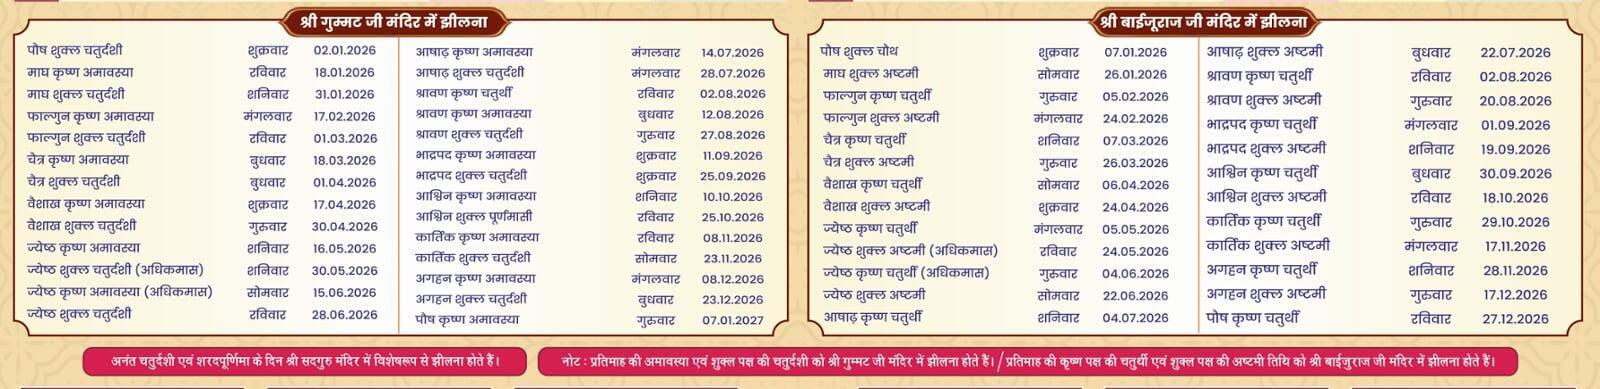 श्री गुम्मट जी मंदिर में झीलना
पौष शुक्ल चतुर्दशी शुक्रवार 02.01.2026
माघ कृष्ण अमावस्या रविवार 18.01.2026
माघ शुक्ल चतुर्दशी शनिवार 31.01.2026
फाल्गुन कृष्ण अमावस्या मंगलवार 17.02.2026
फाल्गुन शुक्ल चतुर्दशी रविवार 01.03.2026
चैत्र कृष्ण अमावस्या बुधवार 18.03.2026
चैत्र शुक्ल चतुर्दशी बुधवार 01.04.2026
वैशाख कृष्ण अमावस्या शुक्रवार 17.04.2026
वैशाख शुक्ल चतुर्दशी गुरुवार 30.04.2026
ज्येष्ठ कृष्ण अमावस्या शनिवार 16.05.2026
ज्येष्ठ शुक्ल चतुर्दशी (अधिकमास) शनिवार 30.05.2026
ज्येष्ठ कृष्ण अमावस्या (अधिकमास) सोमवार 15.06.2026
ज्येष्ठ शुक्ल चतुर्दशी रविवार 28.06.2026
आषाढ़ कृष्ण अमावस्या मंगलवार 14.07.2026
आषाढ़ शुक्ल चतुर्दशी मंगलवार 28.07.2026
श्रावण कृष्ण चतुर्थी रविवार 02.08.2026
श्रावण कृष्ण अमावस्या बुधवार 12.08.2026
श्रावण शुक्ल चतुर्दशी गुरुवार 27.08.2026
भाद्रपद कृष्ण अमावस्या शुक्रवार 11.09.2026
भाद्रपद शुक्ल चतुर्दशी शुक्रवार 25.09.2026
आश्विन कृष्ण अमावस्या शनिवार 10.10.2026
आश्विन शुक्ल पूर्णमासी रविवार 25.10.2026
कार्तिक कृष्ण अमावस्या रविवार 08.11.2026
कार्तिक शुक्ल चतुर्दशी सोमवार 23.11.2026
अगहन कृष्ण अमावस्या मंगलवार 08.12.2026
अगहन शुक्ल चतुर्दशी बुधवार 23.12.2026
पौष कृष्ण अमावस्या गुरुवार 07.01.2027
श्री बाईजूराज जी मंदिर में झीलना
पौष शुक्ल चौथ शुक्रवार 07.01.2026
माघ शुक्ल अष्टमी सोमवार 26.01.2026
फाल्गुन कृष्ण चतुर्थी गुरुवार 05.02.2026
फाल्गुन शुक्ल अष्टमी मंगलवार 24.02.2026
चैत्र कृष्ण चतुर्थी शनिवार 07.03.2026
चैत्र शुक्ल अष्टमी गुरुवार 26.03.2026
वैशाख कृष्ण चतुर्थी सोमवार 06.04.2026
वैशाख शुक्ल अष्टमी शुक्रवार 24.04.2026
ज्येष्ठ कृष्ण चतुर्थी मंगलवार 05.05.2026
ज्येष्ठ शुक्ल अष्टमी (अधिकमास) रविवार 24.05.2026
ज्येष्ठ कृष्ण चतुर्थी (अधिकमास) गुरुवार 04.06.2026
ज्येष्ठ शुक्ल अष्टमी सोमवार 22.06.2026
आषाढ़ कृष्ण चतुर्थी शनिवार 04.07.2026
आषाढ़ शुक्ल अष्टमी बुधवार 22.07.2026
श्रावण कृष्ण चतुर्थी रविवार 02.08.2026
श्रावण शुक्ल अष्टमी गुरुवार 20.08.2026
भाद्रपद कृष्ण चतुर्थी मंगलवार 01.09.2026
भाद्रपद शुक्ल अष्टमी शनिवार 19.09.2026
आश्विन कृष्ण चतुर्थी बुधवार 30.09.2026
आश्विन शुक्ल अष्टमी रविवार 18.10.2026
कार्तिक कृष्ण चतुर्थी गुरुवार 29.10.2026
कार्तिक शुक्ल अष्टमी मंगलवार 17.11.2026
अगहन कृष्ण चतुर्थी शनिवार 28.11.2026
अगहन शुक्ल अष्टमी गुरुवार 17.12.2026
पौष कृष्ण चतुर्थी रविवार 27.12.2026
अनंत चतुर्दशी एवं शरदपूर्णिमा के दिन श्री सदगुरु मंदिर में विशेषरूप से झीलना होते हैं।
नोट : प्रतिमाह की अमावस्या एवं शुक्ल पक्ष की चतुर्दशी को श्री गुम्मट जी मंदिर में झीलना होते हैं। / प्रतिमाह की कृष्ण पक्ष की चतुर्थी एवं शुक्ल पक्ष की अष्टमी तिथि को श्री बाईजुराज जी मंदिर में झीलना होते हैं।